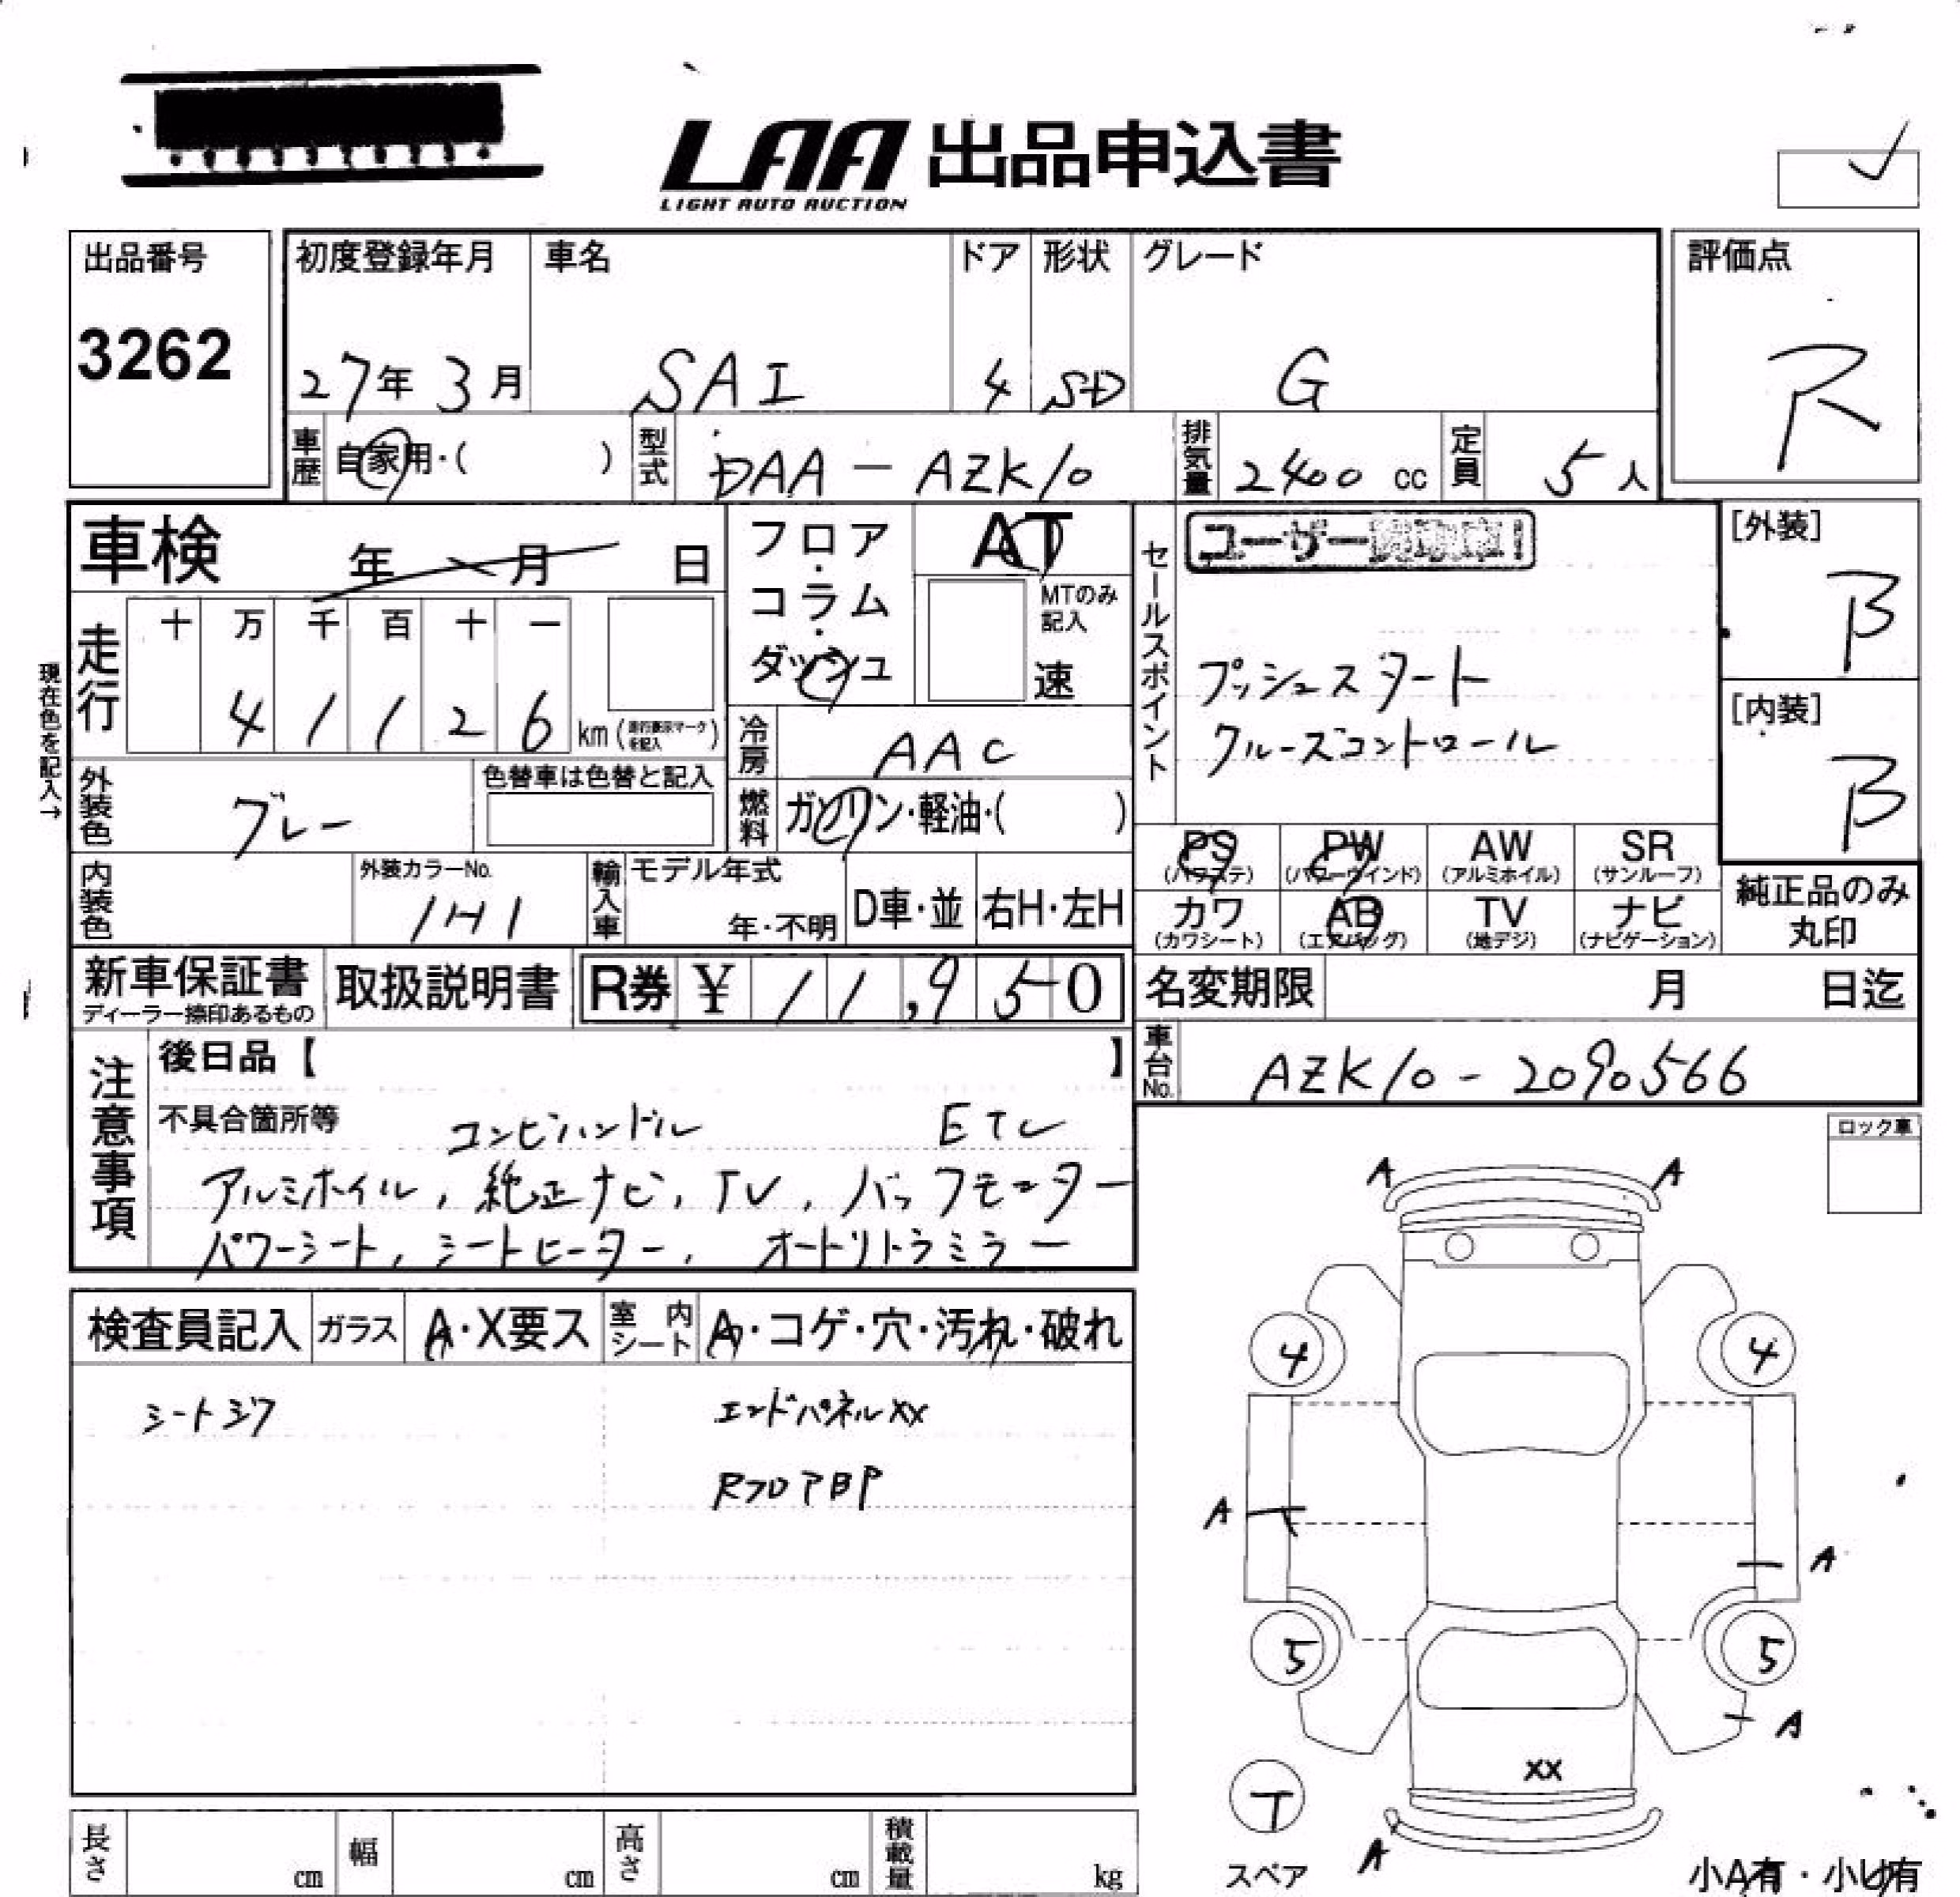 LAA 出品申込書
LIGHT AUTO AUCTION
出品番号 初度登録年月 車名 ドア 形状 グレード 評価点
3262 27年 3月 SAI 4 SD G R
車歴 自家用・( ) 型式 DAA-AZK10 排気量 2400 cc 定員 5人
車検 年 月 日 フロア・コラム・ダッシュ AT セールスポイント ユーザー [外装]
B
MTのみ記入
速
走行 十 万 千 百 十 一
4 1 1 2 6 km (走行表示マークを記入)
現在色を記入→
プッシュスタート
クルーズコントロール
[内装]
B
冷房 AAC
外装色 グレー 色替車は色替と記入 燃料 ガソリン・軽油・( )
PS PW AW SR
(パワステ) (パワーウインド) (アルミホイル) (サンルーフ)
カワ AB TV ナビ
(カワシート) (エアバッグ) (地デジ) (ナビゲーション)
純正品のみ
丸印
内装色 外装カラーNo. 1H1 輸入車 モデル年式 年・不明 D車・並 右H・左H
新車保証書 取扱説明書 R券 ¥ 11,950 名変期限 月 日迄
ディーラー捺印あるもの
車台No. AZK10-2090566
注意事項 後日品【 】
不具合箇所等 コンビハンドル ETC
アルミホイル, 純正ナビ, TV, バックモニター
パワーシート, シートヒーター, オートリトラミラー
ロック車
検査員記入 ガラス A・X要ス 室内シート A・コゲ・穴・汚れ・破れ
シートシワ エンドパネルXX
RフロアBP
A A
4 4
A A
5 5
A
XX
T
スペア
A
小A有・小U有
長さ cm 幅 cm 高さ cm 積載量 kg